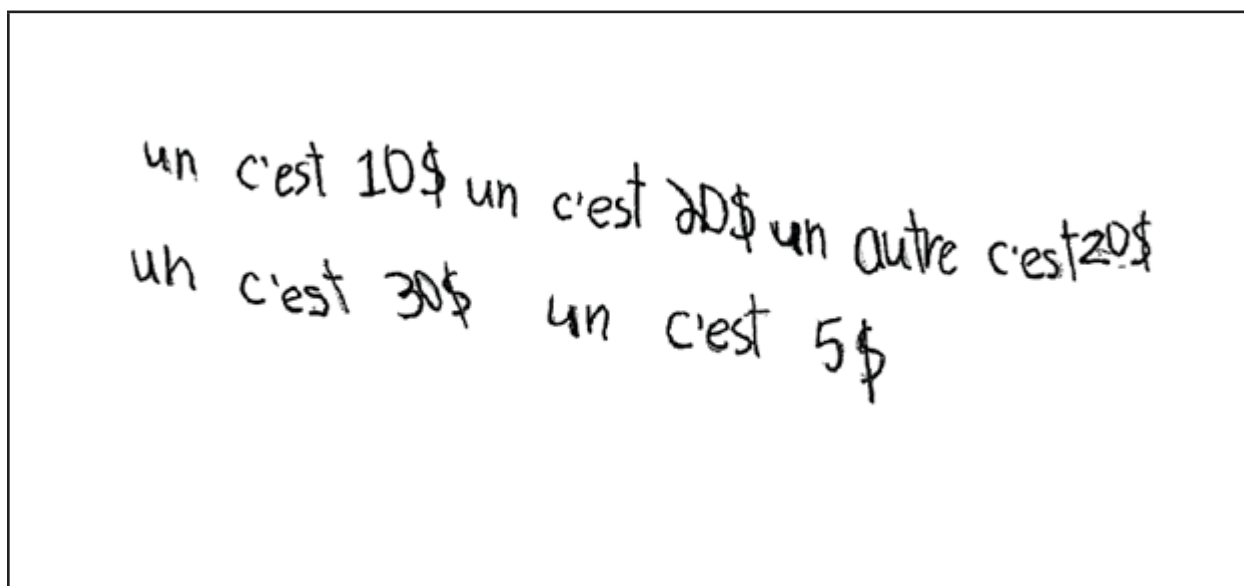 un c'est 10$ un c'est 20$ un autre c'est 20$
un c'est 30$ un c'est 5$